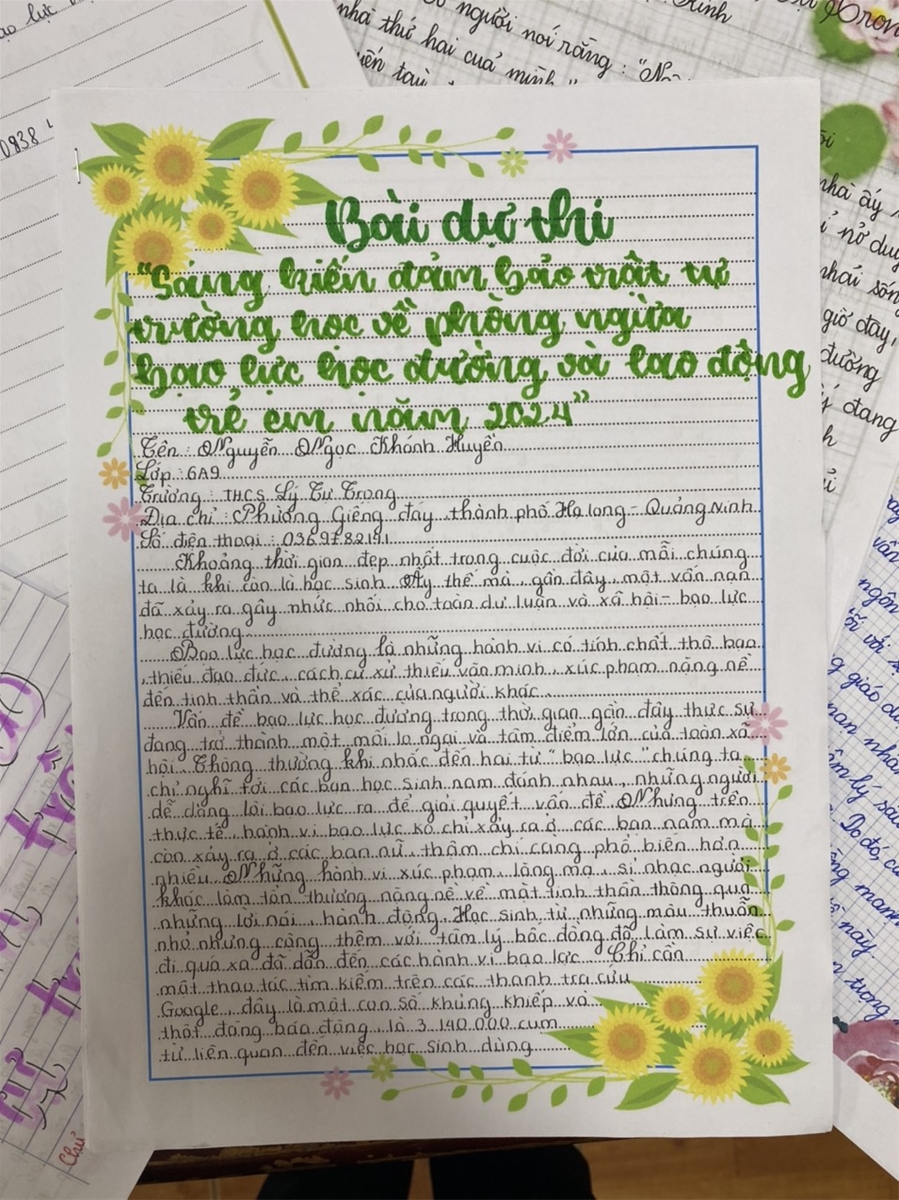 Bài dự thi
"Sáng kiến đảm bảo trật tự
trường học về phòng ngừa
bạo lực học đường và lao động
trẻ em năm 2024"
Tên : Nguyễn Ngọc Khánh Huyền
Lớp : 6A9
Trường : THCS Lý Tự Trọng
Địa chỉ : Phường Giếng đáy thành phố Hạ long - Quảng Ninh
Số điện thoại :
Khoảng thời gian đẹp nhất trong cuộc đời của mỗi chúng
ta là khi còn là học sinh. Ấy thế mà, gần đây, một vấn nạn
đã xảy ra gây nhức nhối cho toàn dư luận và xã hội - bạo lực
học đường.
Bạo lực học đường là những hành vi có tính chất thô bạo
, thiếu đạo đức, cách cư xử thiếu văn minh, xúc phạm nặng nề
đến tinh thần và thể xác của người khác.
Vấn đề bạo lực học đường trong thời gian gần đây thực sự
đang trở thành một mối lo ngại và tâm điểm lớn của toàn xã
hội. Thông thường khi nhắc đến hai từ "bạo lực" chúng ta
chỉ nghĩ tới các bạn học sinh nam đánh nhau, những người
dễ dàng lôi bạo lực ra để giải quyết vấn đề. Nhưng trên
thực tế, hành vi bạo lực ko chỉ xảy ra ở các bạn nam mà
còn xảy ra ở các bạn nữ, thậm chí càng phổ biến hơn
nhiều. Những hành vi xúc phạm, lăng mạ, sỉ nhục người
khác làm tổn thương nặng nề về mặt tinh thần thông qua
những lời nói, hành động. Học sinh từ những mâu thuẫn
nhỏ nhưng cộng thêm với tâm lý bốc đồng đã làm sự việc
đi quá xa đã dẫn đến các hành vi bạo lực. Chỉ cần
một thao tác tìm kiếm trên các thanh tra cứu
Google, đây là một con số khủng khiếp và
thật đáng báo động là 3.140.000 cụm
từ liên quan đến việc học sinh dùng